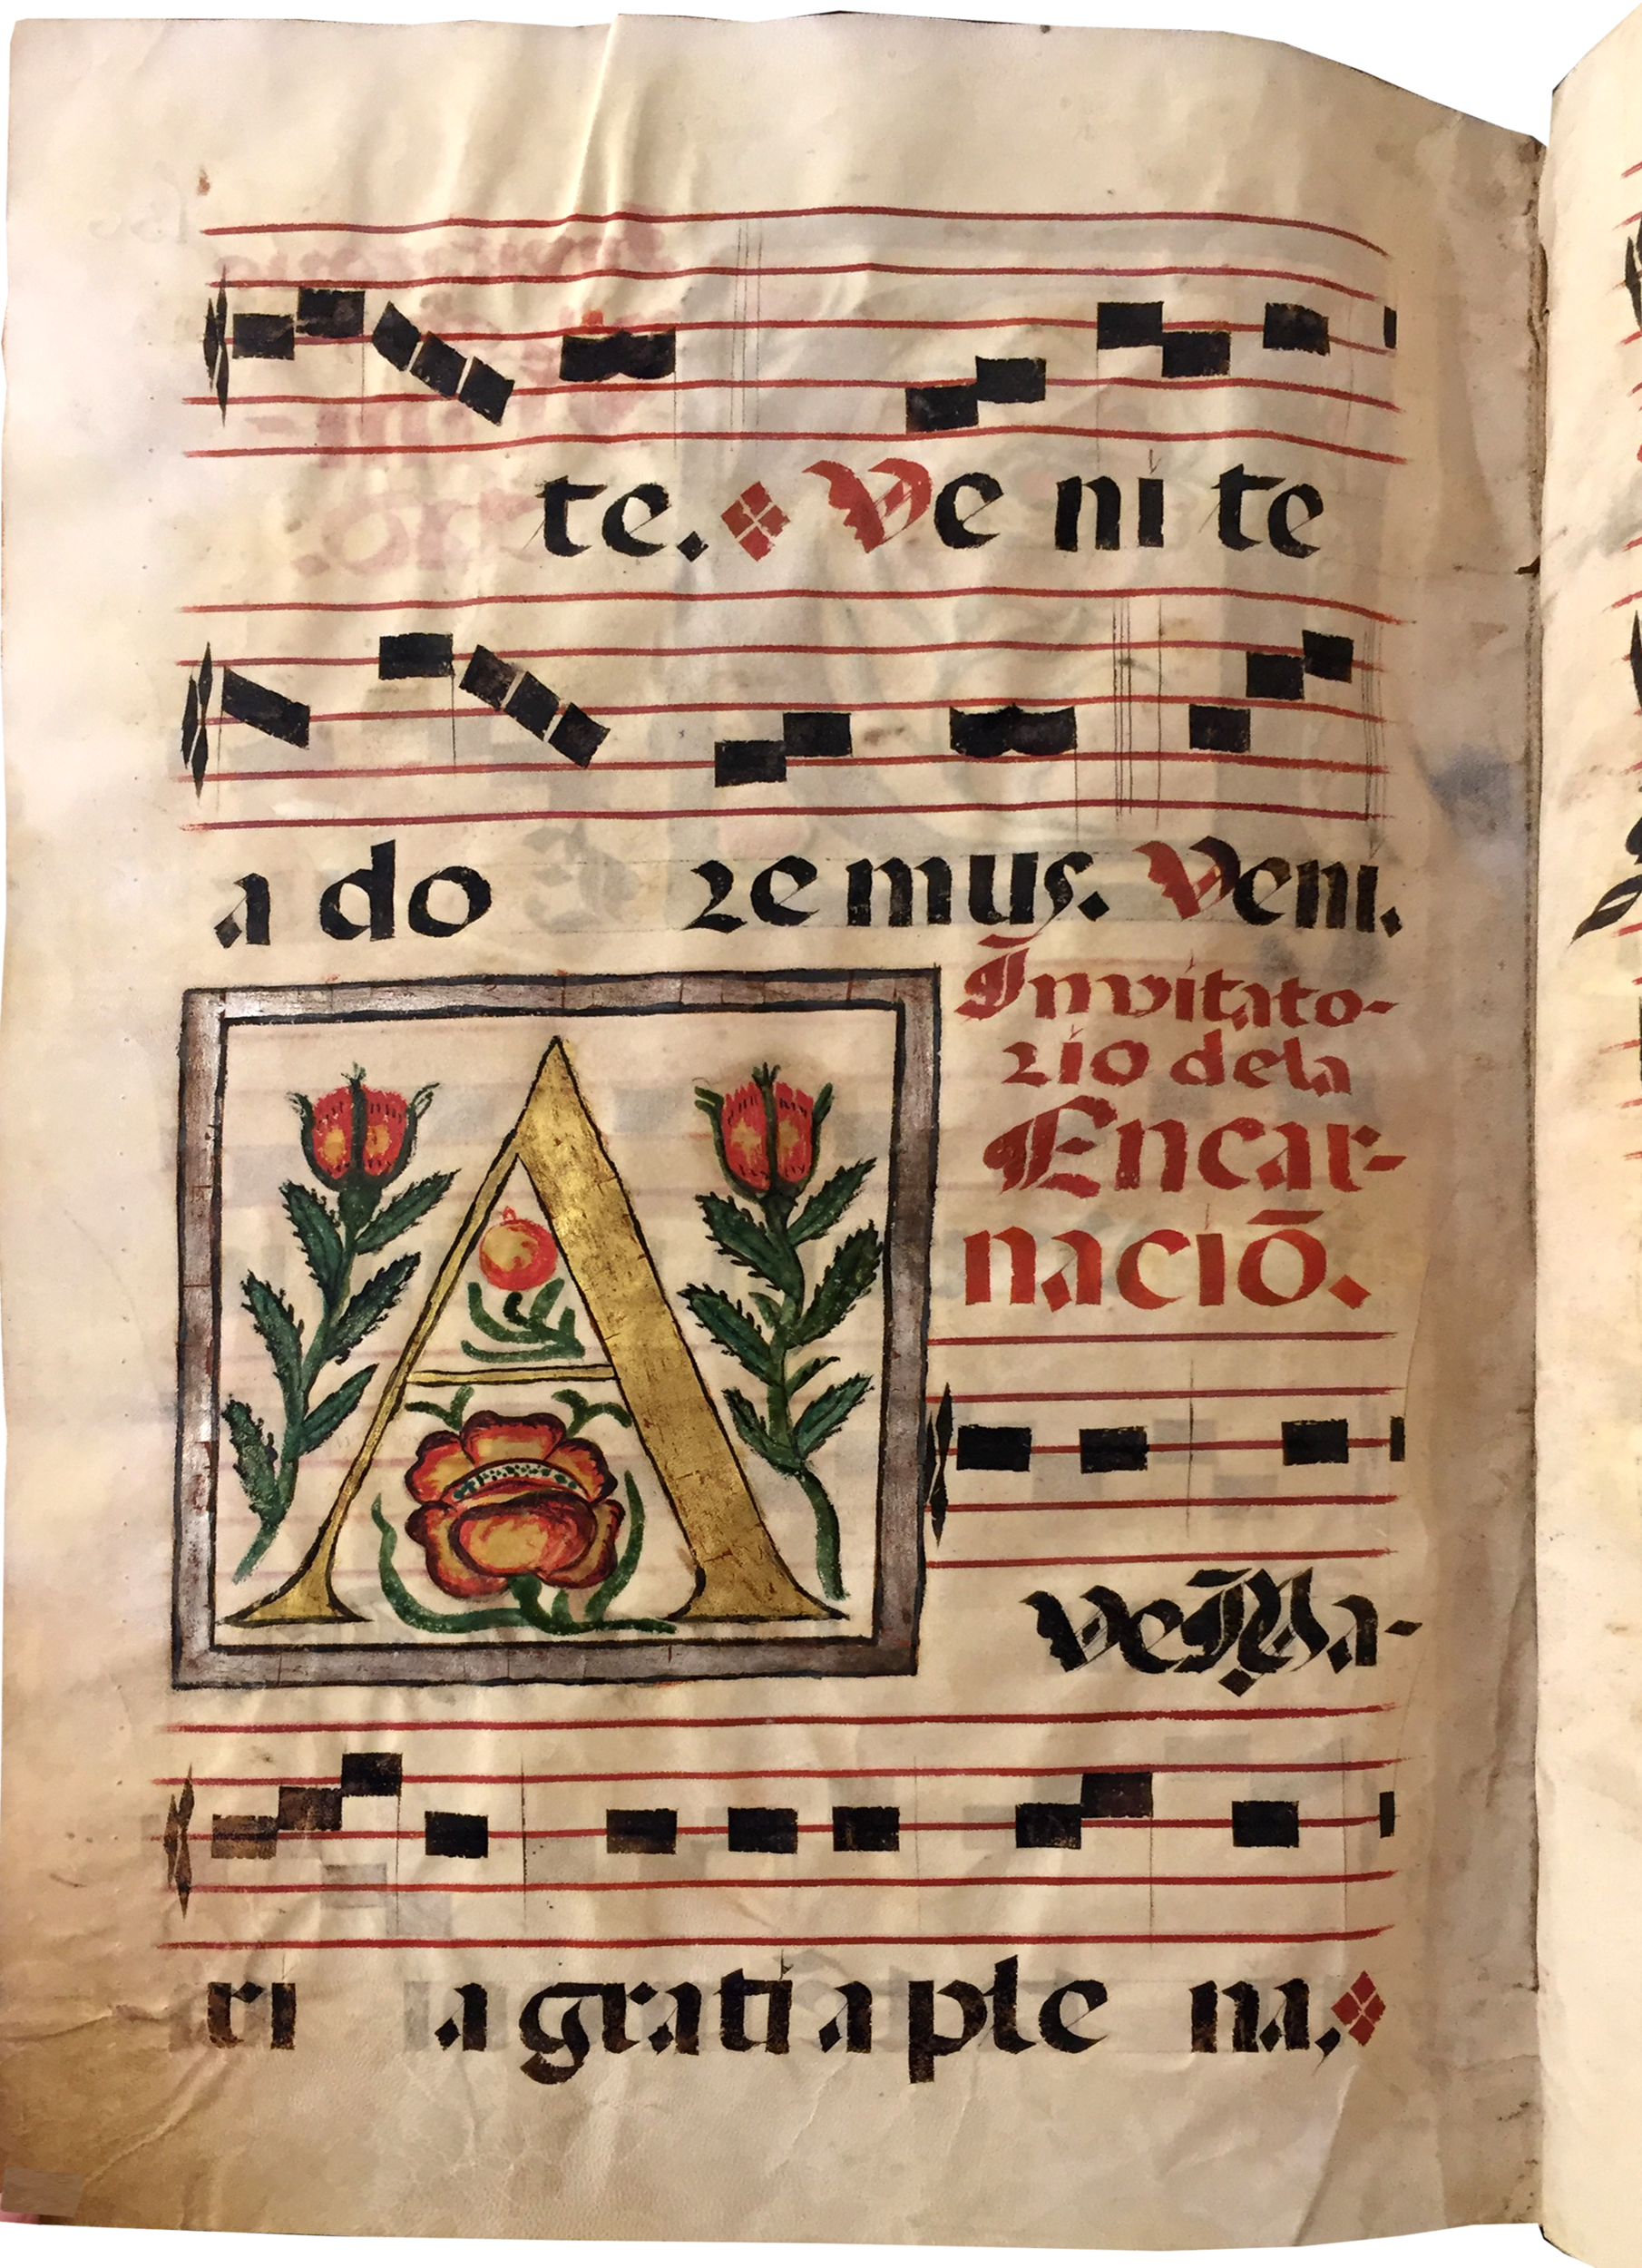 te. Ve ni te
a do re mus. Veni.
Invitato-
rio dela
Encar-
naciō.
A ve Ma-
ri a grati a ple na.